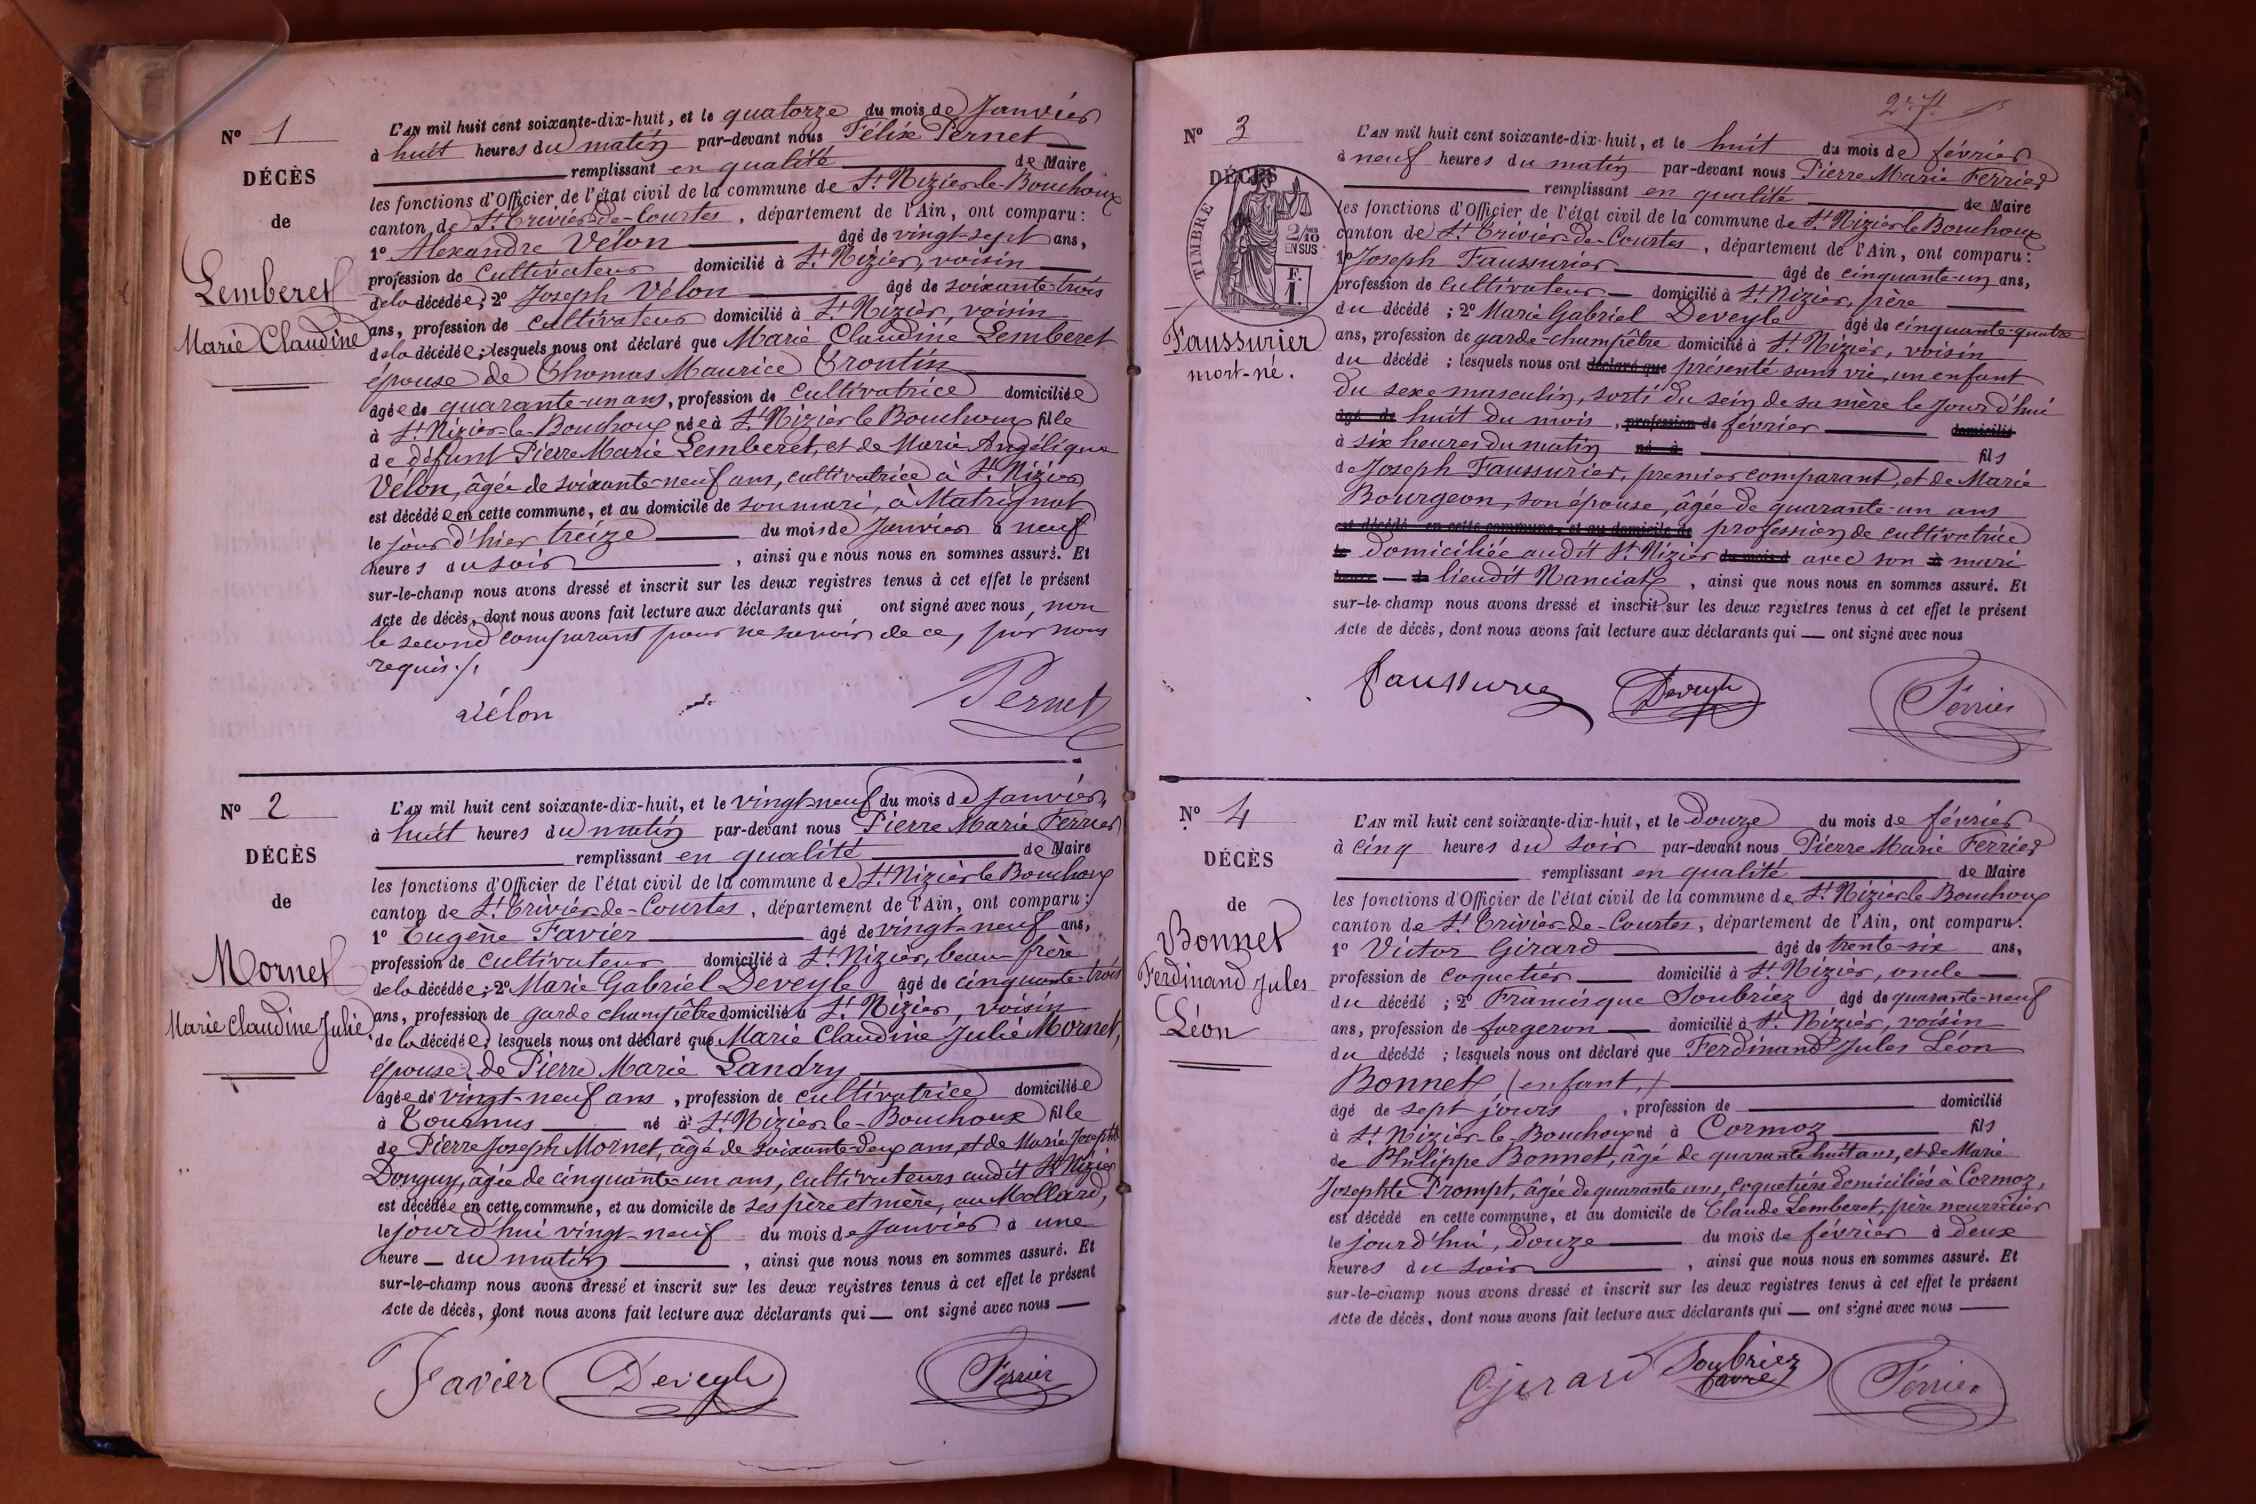 N° 1
DÉCÈS
de
Lemberet
Marie Claudine
L'AN mil huit cent soixante-dix-huit, et le quatorze du mois de Janvier
à huit heures du matin par-devant nous Félix Pernet
remplissant en qualité de Maire
les fonctions d'Officier de l'état civil de la commune de St Nizier-le-Bouchoux
canton de St Trivier-de-Courtes, département de l'Ain, ont comparu :
1° Alexandre Vélon âgé de vingt-sept ans,
profession de cultivateur domicilié à St Nizier, voisin
de la décédée ; 2° Joseph Vélon âgé de soixante-trois
ans, profession de cultivateur domicilié à St Nizier, voisin
de la décédée ; lesquels nous ont déclaré que Marie Claudine Lemberet
épouse de Thomas Maurice Trontin
âgée de quarante-un ans, profession de cultivatrice domiciliée
à St Nizier-le-Bouchoux née à St Nizier le Bouchoux fille
de défunt Pierre Marie Lemberet, et de Marie Angélique
Vélon, âgée de soixante-neuf ans, cultivatrice à St Nizier
est décédée en cette commune, et au domicile de son mari, à Matrignat
le jour d'hier treize du mois de Janvier à neuf
heures du soir, ainsi que nous nous en sommes assuré. Et
sur-le-champ nous avons dressé et inscrit sur les deux registres tenus à cet effet le présent
Acte de décès, dont nous avons fait lecture aux déclarants qui ont signé avec nous, non
le second comparant pour ne savoir de ce, par nous
requis ./.
Vélon
Pernet
N° 2
DÉCÈS
de
Mornet
Marie Claudine Julie
L'AN mil huit cent soixante-dix-huit, et le vingt-neuf du mois de Janvier,
à huit heures du matin par-devant nous Pierre Marie Ferrier
remplissant en qualité de Maire
les fonctions d'Officier de l'état civil de la commune de St Nizier le Bouchoux
canton de St Trivier-de-Courtes, département de l'Ain, ont comparu :
1° Eugène Favier âgé de vingt-neuf ans,
profession de cultivateur domicilié à St Nizier, beau-frère
de la décédée ; 2° Marie Gabriel Deveyle âgé de cinquante-trois
ans, profession de garde champêtre domicilié à St Nizier, voisin
de la décédée ; lesquels nous ont déclaré que Marie Claudine Julie Mornet,
épouse de Pierre Marie Landry
âgée de vingt-neuf ans, profession de cultivatrice domiciliée
à Tournus né à St Nizier-le-Bouchoux fille
de Pierre Joseph Mornet, âgé de soixante-deux ans, et de Marie Josephte
Donguy, âgée de cinquante-un ans, cultivateurs audit St Nizier
est décédée en cette commune, et au domicile de ses père et mère, au Mollard,
le jourd'hui vingt-neuf du mois de Janvier à une
heure du matin, ainsi que nous nous en sommes assuré. Et
sur-le-champ nous avons dressé et inscrit sur les deux registres tenus à cet effet le présent
Acte de décès, dont nous avons fait lecture aux déclarants qui — ont signé avec nous —
Favier Deveyle Ferrier
N° 3
DÉCÈS
TIMBRE
2/10
EN SUS
F.
1.
Faussurier
mort-né.
L'AN mil huit cent soixante-dix-huit, et le huit du mois de février
à neuf heures du matin par-devant nous Pierre Marie Ferrier
remplissant en qualité de Maire
les fonctions d'Officier de l'état civil de la commune de St Nizier le Bouchoux
canton de St Trivier-de-Courtes, département de l'Ain, ont comparu :
1° Joseph Faussurier âgé de cinquante-un ans,
profession de cultivateur domicilié à St Nizier, père
du décédé ; 2° Marie Gabriel Deveyle âgé de cinquante-quatre
ans, profession de garde-champêtre domicilié à St Nizier, voisin
du décédé ; lesquels nous ont déclaré que présenté sans vie, un enfant
du sexe masculin, sorti du sein de sa mère le jourd'hui
âgé de huit du mois, profession de février domicilié
à six heures du matin né à fils
de Joseph Faussurier, premier comparant, et de Marie
Bourgeon, son épouse, âgée de quarante-un ans
est décédé en cette commune, et au domicile de profession de cultivatrice
le domiciliée audit St Nizier du mois d avec son à mari
heure — du lieudit Nanciat, ainsi que nous nous en sommes assuré. Et
sur-le-champ nous avons dressé et inscrit sur les deux registres tenus à cet effet le présent
Acte de décès, dont nous avons fait lecture aux déclarants qui — ont signé avec nous
Faussurier Deveyle Ferrier
N° 4
DÉCÈS
de
Bonnet
Ferdinand Jules
Léon
L'AN mil huit cent soixante-dix-huit, et le douze du mois de février
à cinq heures du soir par-devant nous Pierre Marie Ferrier
remplissant en qualité de Maire
les fonctions d'Officier de l'état civil de la commune de St Nizier le Bouchoux
canton de St Trivier-de-Courtes, département de l'Ain, ont comparu :
1° Victor Girard âgé de trente-six ans,
profession de coquetier domicilié à St Nizier, oncle
du décédé ; 2° Francisque Soubriez âgé de quarante-neuf
ans, profession de forgeron domicilié à St Nizier, voisin
du décédé ; lesquels nous ont déclaré que Ferdinand Jules Léon
Bonnet, (enfant,)
âgé de sept jours, profession de domicilié
à St Nizier-le-Bouchoux né à Cormoz fils
de Philippe Bonnet, âgé de quarante-huit ans, et de Marie
Josephte Prompt, âgée de quarante ans, coquetiers domiciliés à Cormoz,
est décédé en cette commune, et au domicile de Claude Lemberet, père nourricier
le jourd'hui, douze du mois de février à deux
heures du soir, ainsi que nous nous en sommes assuré. Et
sur-le-champ nous avons dressé et inscrit sur les deux registres tenus à cet effet le présent
Acte de décès, dont nous avons fait lecture aux déclarants qui — ont signé avec nous —
Girard Soubriez Ferrier